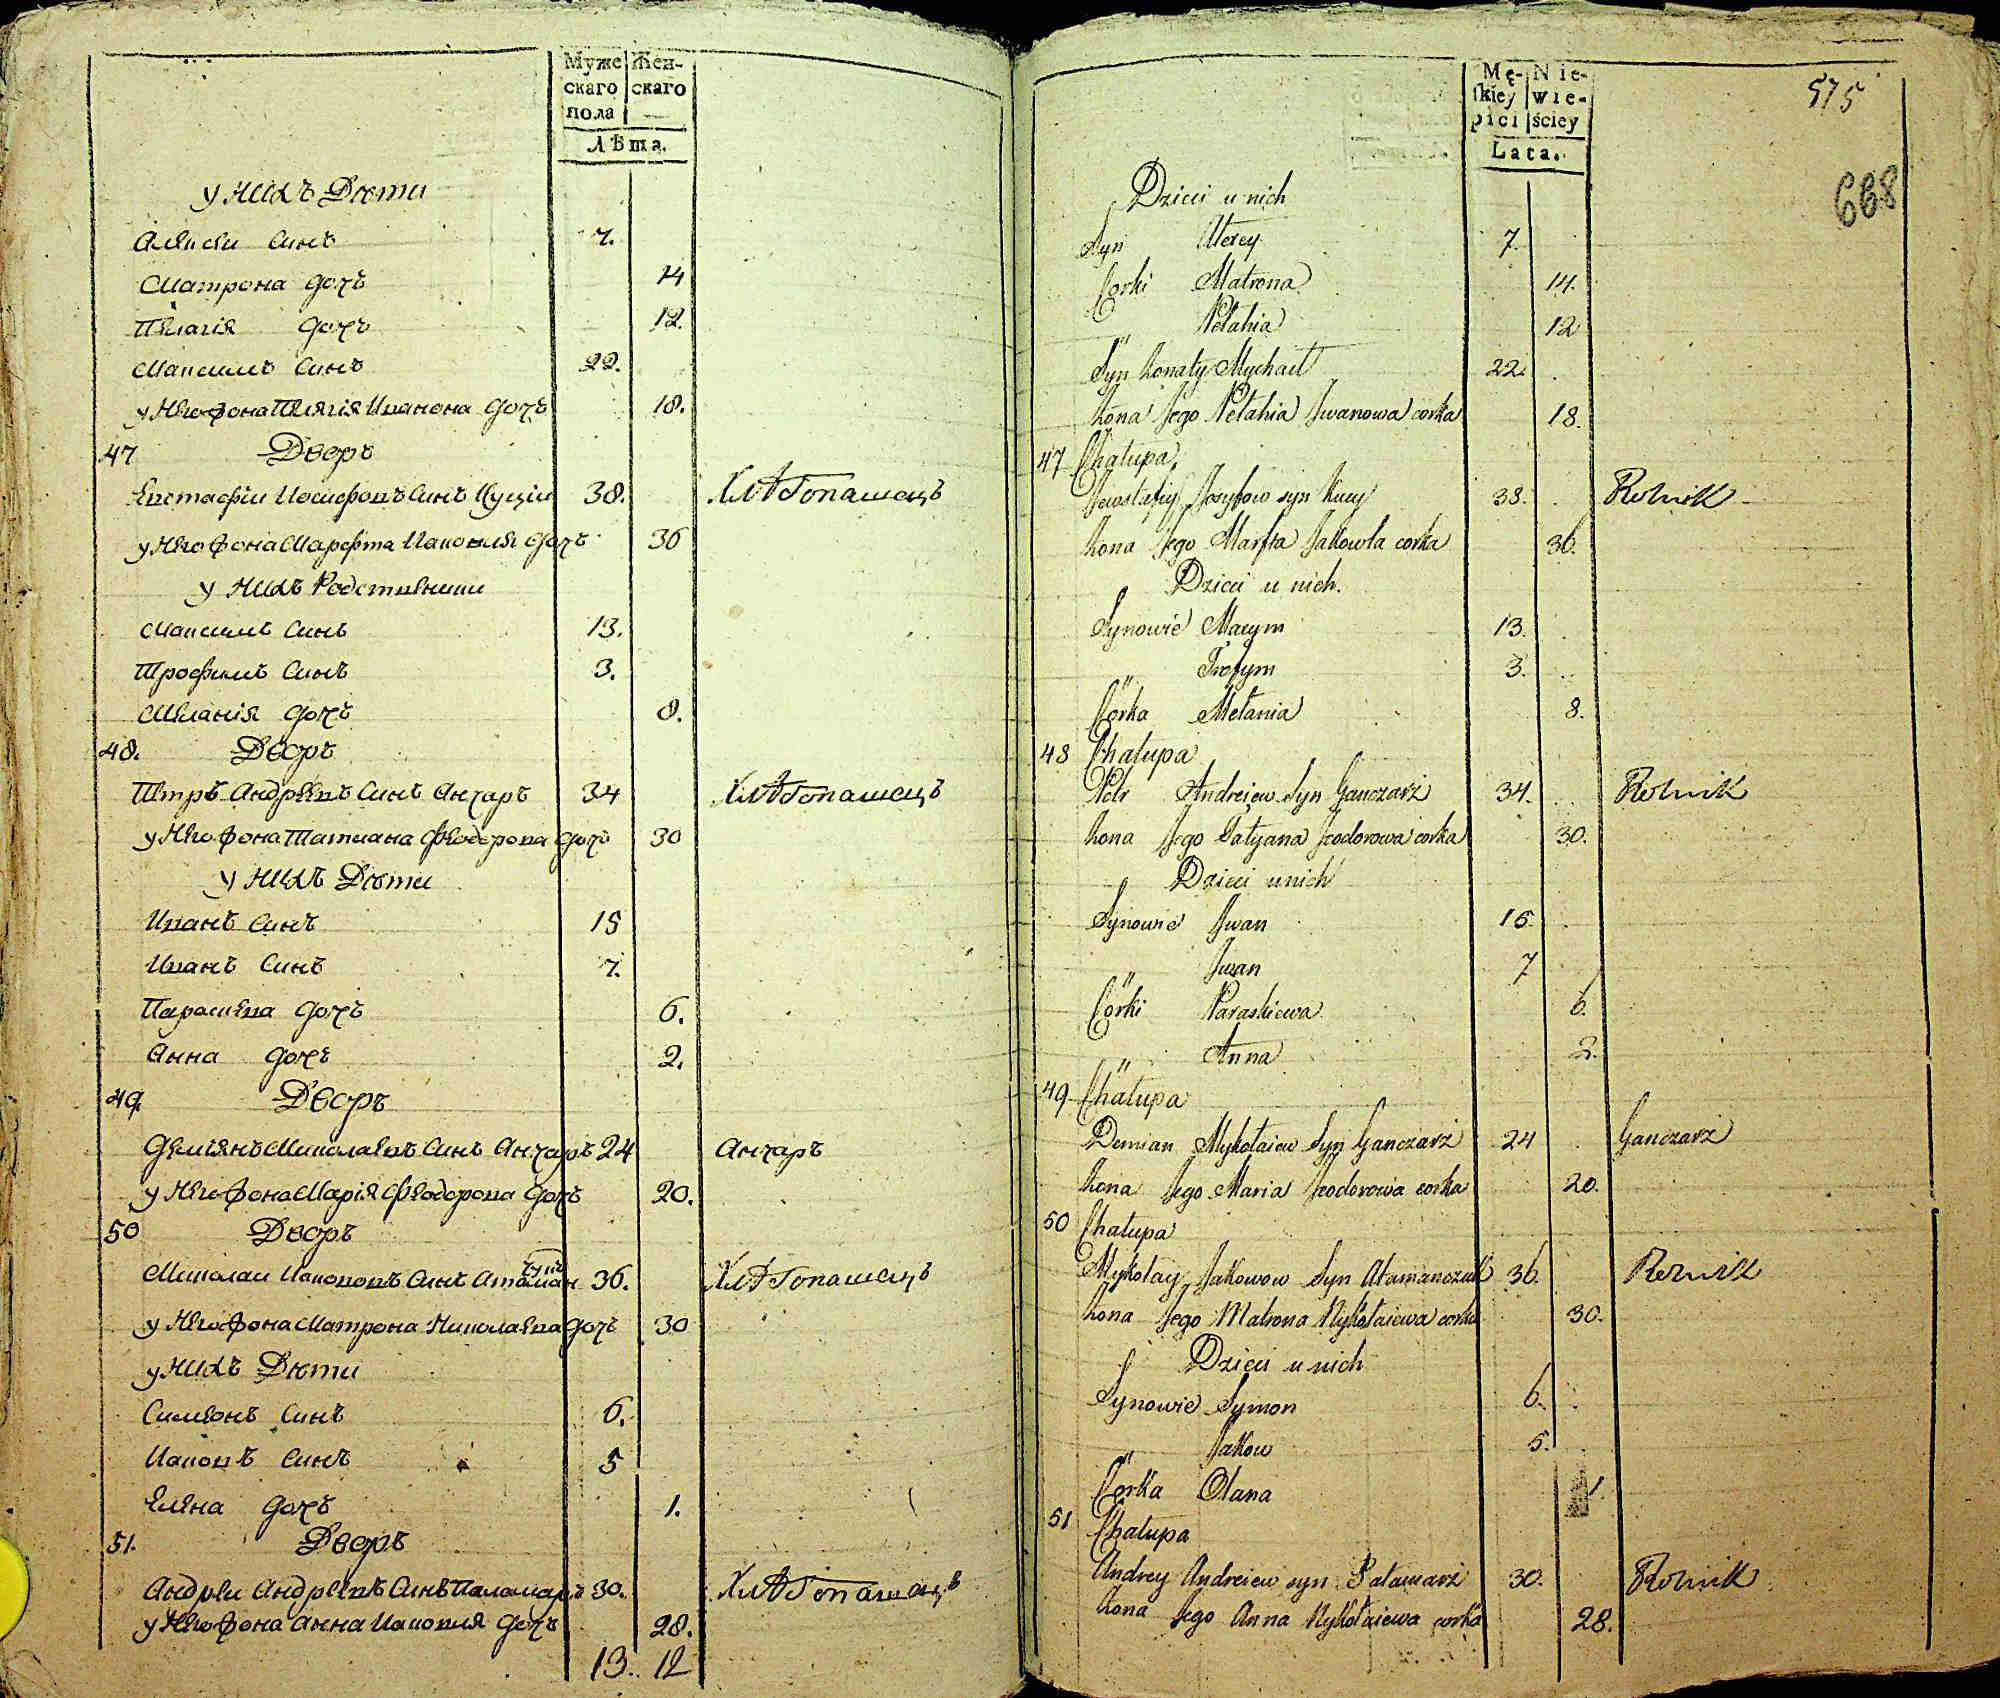 Муже Жен-
скаго скаго
пола —
Лѣта.
у нихъ Дѣти
Алексѣи Синъ 7.
Матрона дочъ 14
Пелагія дочъ 12.
Максимъ Синъ 22.
у Него Жона Пелагія Иванова дочъ 18.
47 Дворъ
Евстафіи Иосифовъ Синъ Куціи 38. Хлѣбопашецъ
у Него Жона Марфта Иаковля дочъ 36
у нихъ Родственики
Максимъ Синъ 13.
Трофимъ Синъ 3.
Меланія дочъ 8.
48. Дворъ
Петръ Андреевъ Синъ Анчаръ 34 Хлѣбопашецъ
у Него Жона Татиана Феодорова дочъ 30
у нихъ Дѣти
Иванъ Синъ 15
Иванъ Синъ 7.
Параскева дочъ 6.
Анна дочъ 2.
49. Дворъ
Демянъ Миколаевъ Синъ Анчаръ 24 Анчаръ
у Него Жона Марія Феодорова дочъ 20.
50 Дворъ
Миколаи Иакововъ Синъ Атаманчукъ 36. Хлѣбопашецъ
у Него Жона Матрона Николаева дочъ 30
у нихъ Дѣти
Симеонъ Синъ 6.
Иаковъ Синъ 5
Елена дочъ 1.
51. Дворъ
Андреи Андреевъ Синъ Паламаръ 30. Хлѣбопашецъ
у Него Жона Анна Иаковля дочъ 28.
13. 12
575
668
Mę- Nie-
skiey wie-
płci ściey
Lata.
Dzieci u nich
Syn Alexey 7.
Corki Matrona 14.
" Pełahia 12
Syn żonaty Mychaił 22.
żona Jego Pełahia Iwanowa corka 18.
47 Chałupa,
Jewstafiy Josyfow syn Kucy 38. Rolnik
żona Jego Marfta Jakowla corka 36.
Dzieci u nich.
Synowie Maxym 13.
" Trofym 3.
Córka Mełania 8.
48 Chałupa
Petr Andreiew Syn Ganczarz 34. Rolnik
żona Jego Tatyana Feodorowa corka 30.
Dzieci u nich
Synowie Iwan 15
" Iwan 7
Córki Paraskiewa 6.
" Anna 2.
49 Chałupa
Demian Mykołaiew Syn Ganczarz 24 Ganczarz
żona Jego Maria Feodorowa corka 20.
50 Chałupa
Mykołay Jakowow Syn Atamanczuk 36. Rolnik
żona Jego Matrona Nykołaiewa corka 30.
Dzieci u nich
Synowie Symon 6.
" Jakow 5.
Córka Ołana 1
51 Chałupa
Andrey Andreiew syn Pałamarz 30. Rolnik
żona Jego Anna Nykołaiewa corka 28.